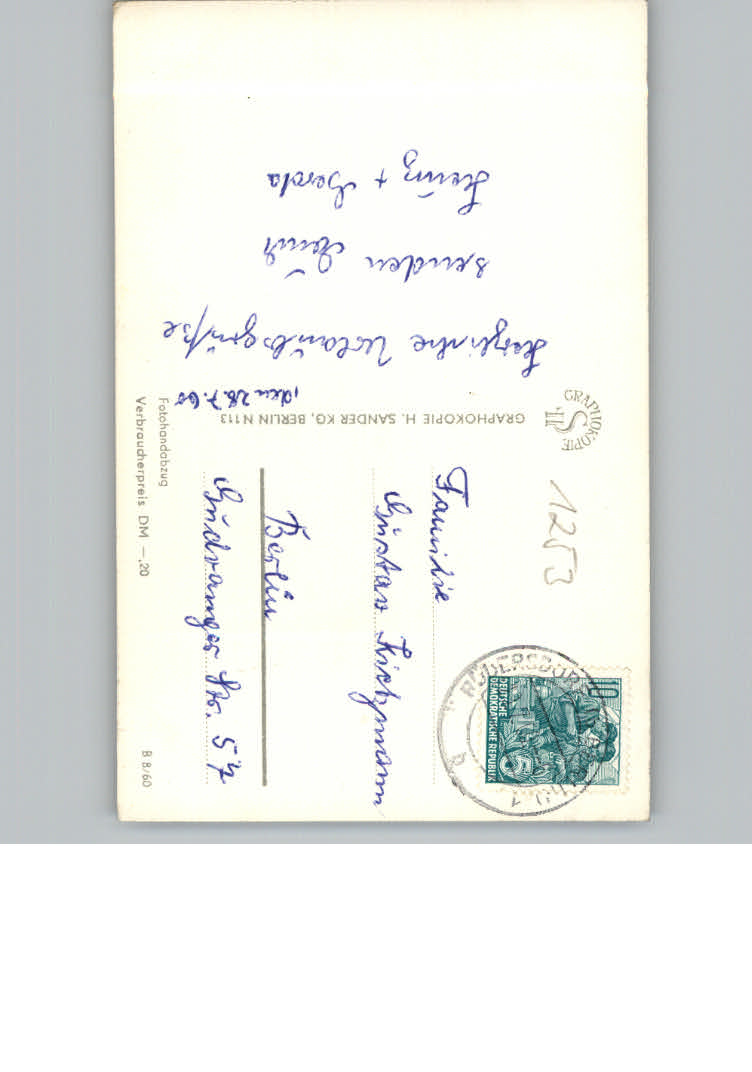 , den 28.7.60
Herzliche Urlaubsgrüße
senden Euch
Heinz + Gerda
GRAPHOKOPIE H. SANDER KG, BERLIN N 113
GRAPHOKOPIE
HS
1253
Familie
Gustav
Berlin
Str. 57
RÜDERSDORF
1
b
10
DEUTSCHE
DEMOKRATISCHE REPUBLIK
Fotohandabzug
Verbraucherpreis DM -,20
B 8/60